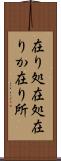 在り処在処在
りか在り所